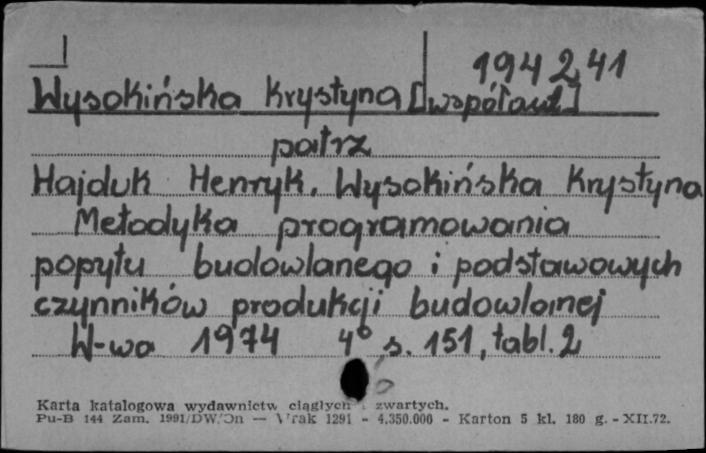 194241
Wysokińska Krystyna [współaut.]
patrz
Hajduk Henryk, Wysokińska Krystyna
Metodyka programowania
popytu budowlanego i podstawowych
czynników produkcji budowlanej
W-wa 1974 4° s. 151, tabl. 2
Karta katalogowa wydawnictw ciągłych i zwartych.
Pu-B 144 Zam. 1991/DW/On — Wrak 1291 - 4.350.000 - Karton 5 kl. 180 g. - XII.72.